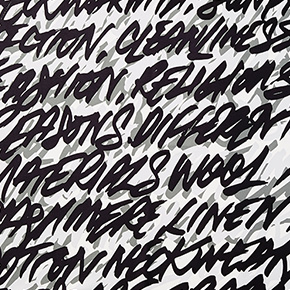 ECTION. CLEANLINESS
FASHION. RELIGIOUS
REASONS. DIFFERENT
MATERIALS WOOL
CASHMERE LINEN
COTTON NECKWEAR